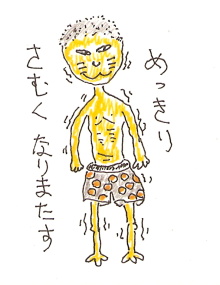 めっきり
さむく なりまたす